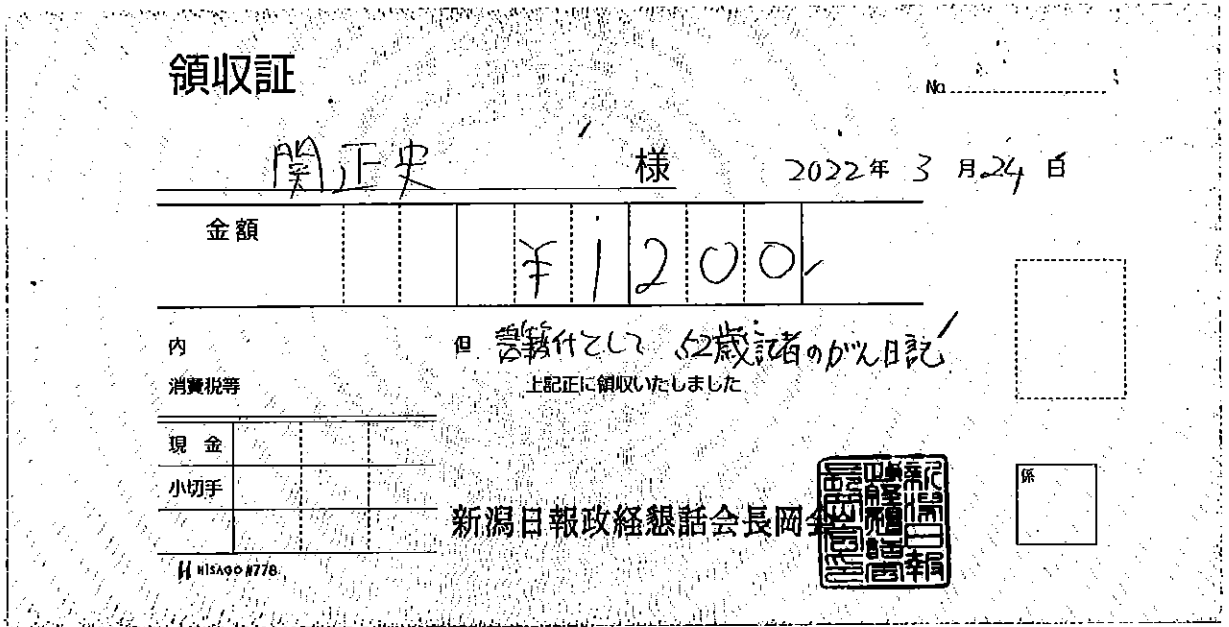 領収証
No.
関正史 様 2022年 3月24日
金額 ¥1200
内 但 書籍代として 52歳記者のがん日記
消費税等 上記正に領収いたしました
現金
小切手
係
新潟日報政経懇話会長岡会
HISAGO #778